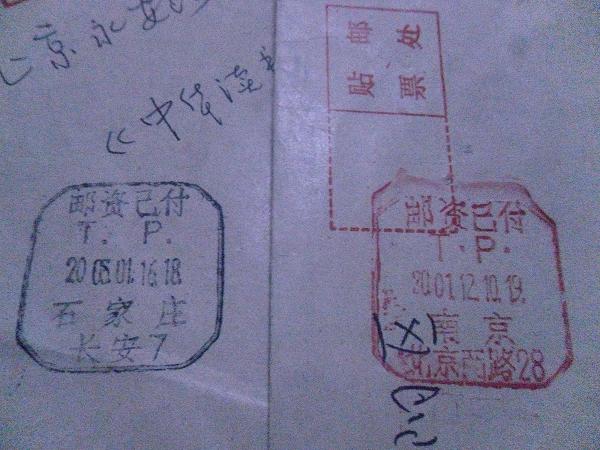 京永安
《中华读书
邮资已付
T. P.
2005.01.16.18
石家庄
长安7
贴邮
票处
邮资已付
T. P.
2001.12.10.19.
南京
北京西路28